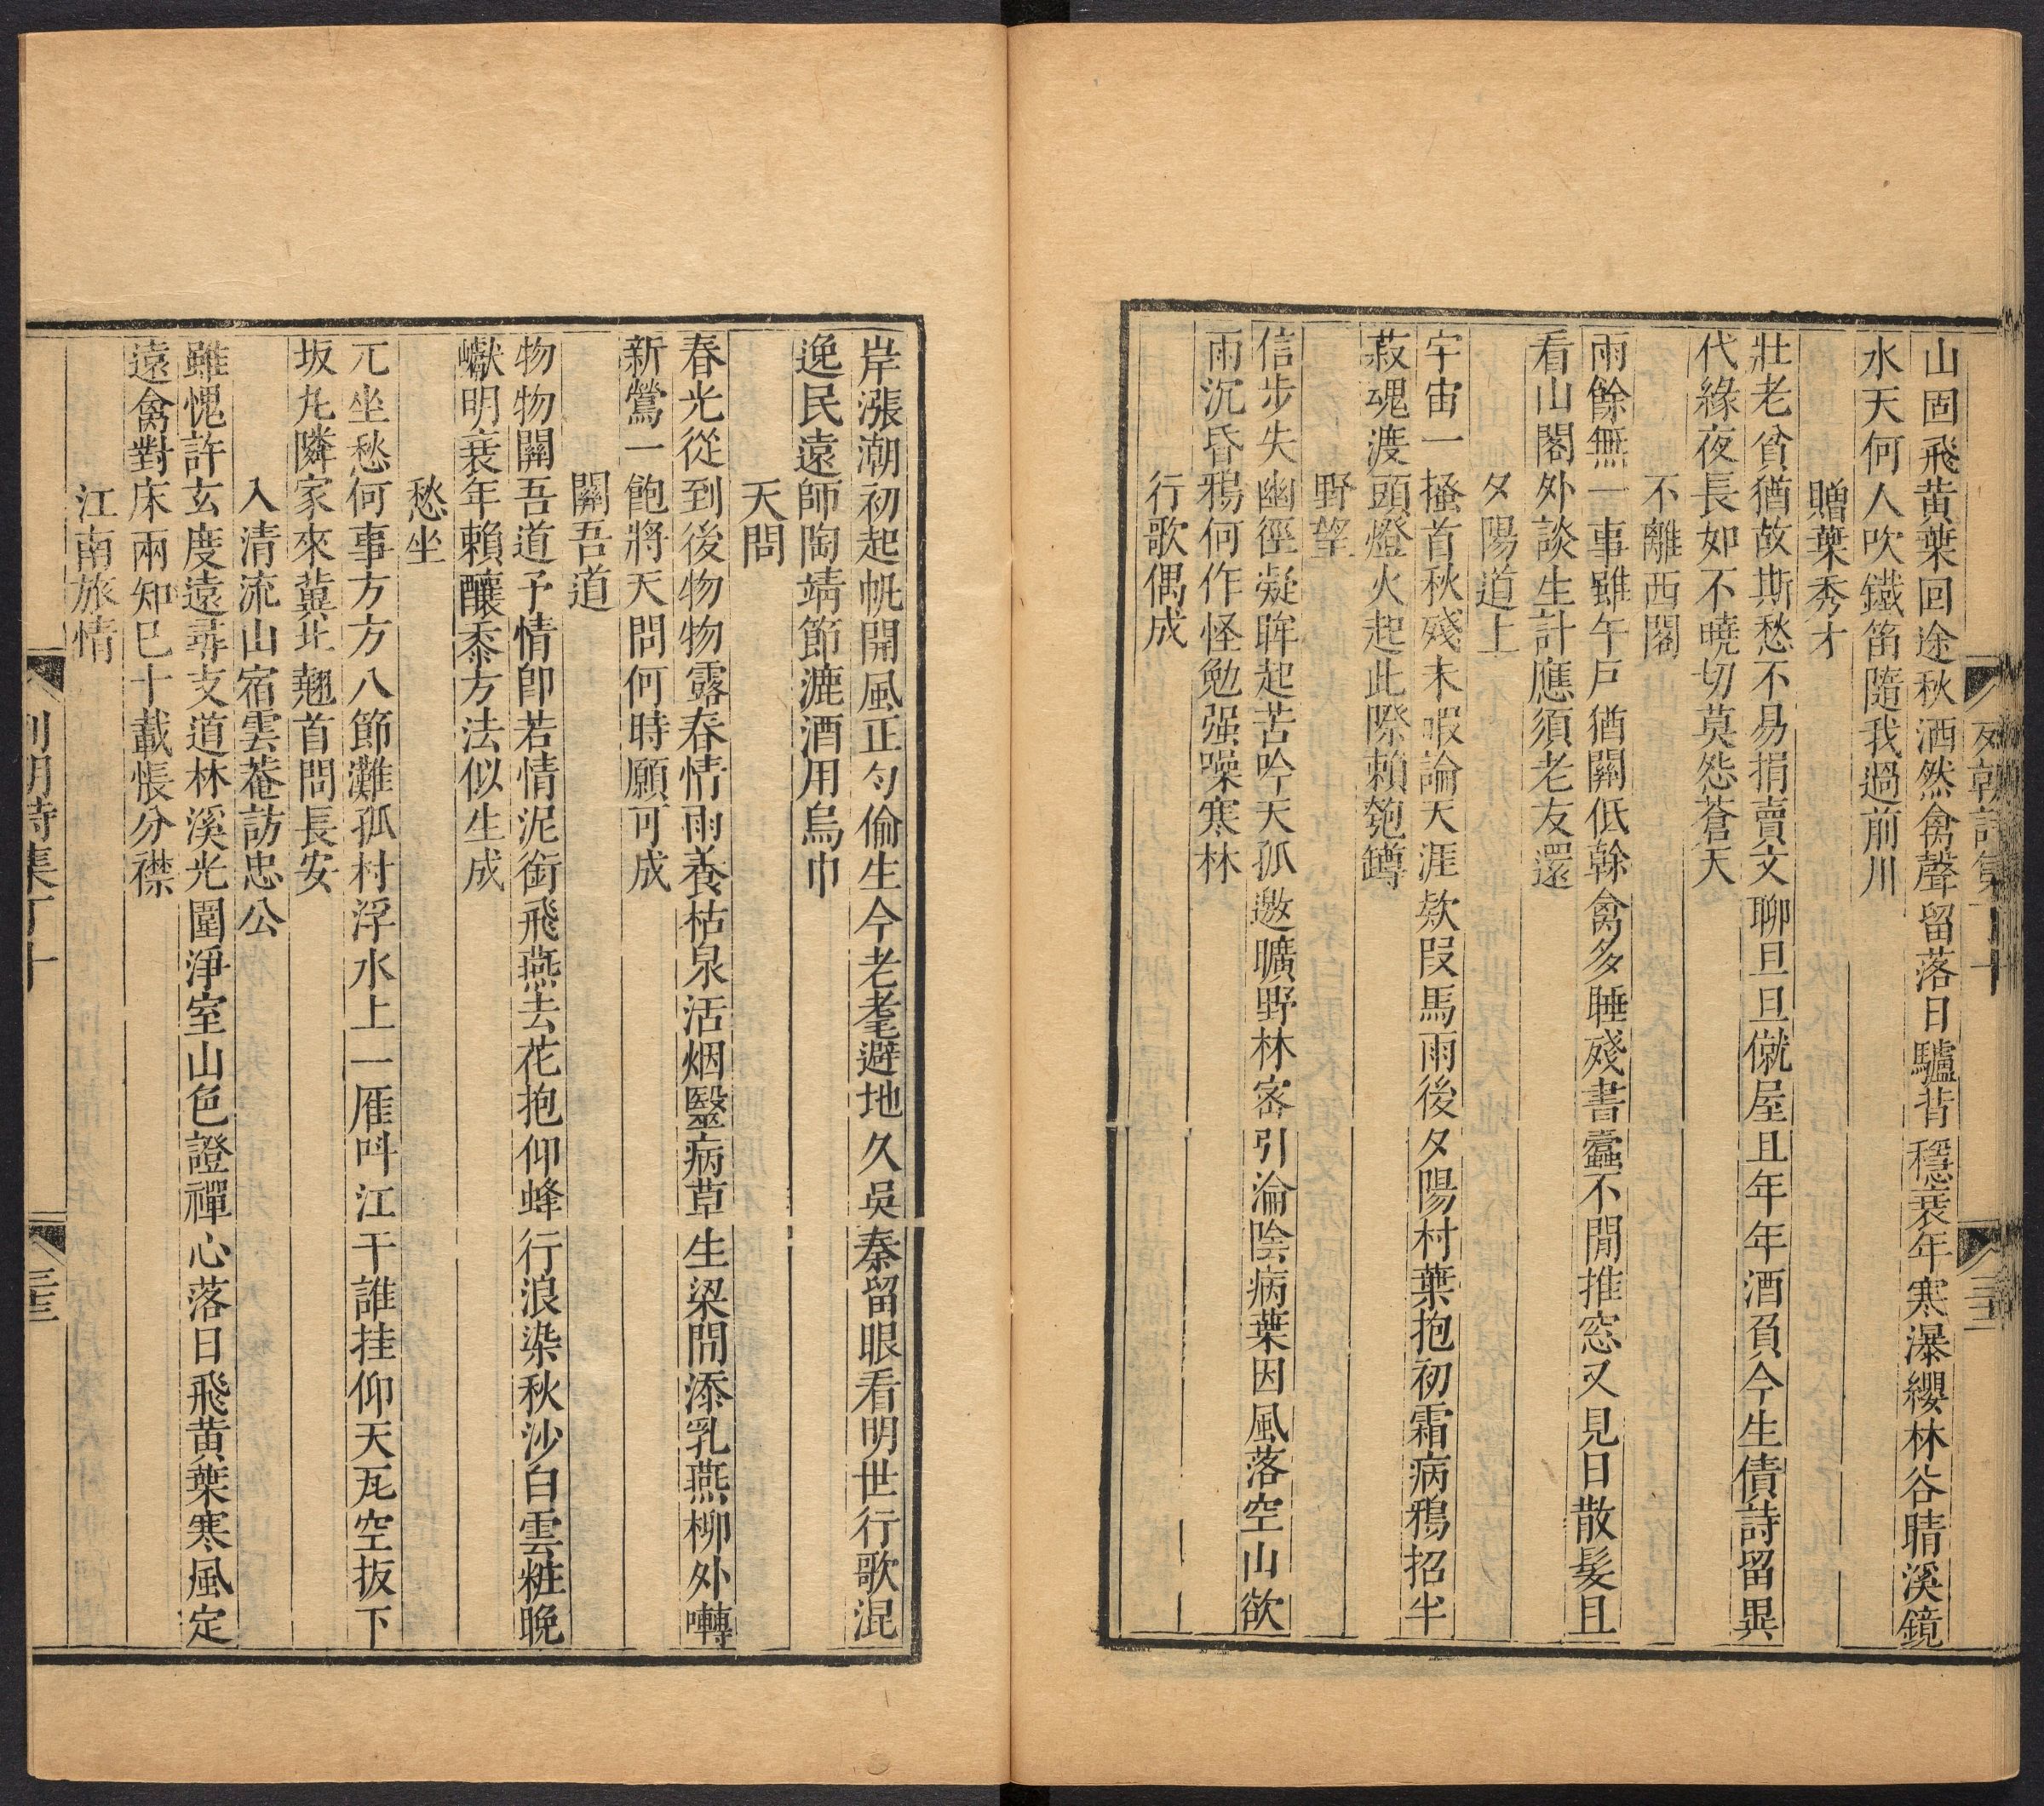 列朝詩集丁十
三十三
山固飛黃葉回途秋洒然禽聲留落日驢背穩衰年寒瀑纓林谷晴溪鏡
水天何人吹鐵笛隨我過前川
贈葉秀才
壯老貧猶故斯愁不易捐賣文聊旦旦僦屋且年年酒負今生債詩留異
代緣夜長如不曉切莫怨蒼天
不離西閣
雨餘無一事雖午戶猶關低幹禽多睡殘書蠧不閒推窓又見日散髮且
看山閣外談生計應須老友還
夕陽道上
宇宙一搔首秋殘未暇論天涯欸叚馬雨後夕陽村葉抱初霜病鴉招半
菽魂渡頭燈火起此際賴匏罇
野望
信步失幽徑凝眸起苦吟天孤邀曠野林密引淪陰病葉因風落空山欲
雨沉昏鴉何作怪勉强噪寒林
行歌偶成
岸漲潮初起帆開風正勻偷生今老耄避地久吳秦留眼看明世行歌混
逸民遠師陶靖節漉酒用烏巾
天問
春光從到後物物露春情雨養枯泉活烟醫病草生梁間添乳燕柳外囀
新鶯一飽將天問何時願可成
關吾道
物物關吾道予情卽若情泥銜飛燕去花抱仰蜂行浪染秋沙白雲粧晚
巘明衰年賴釀黍方法似生成
愁坐
兀坐愁何事方方八節灘孤村浮水上一雁呌江干誰挂仰天瓦空扳下
坂丸隣家來冀北翹首問長安
入清流山宿雲菴訪忠公
雖愧許玄度遠尋支道林溪光圍淨室山色證禪心落日飛黃葉寒風定
遠禽對床兩知巳十載悵分襟
江南旅情
列朝詩集丁十
三十三